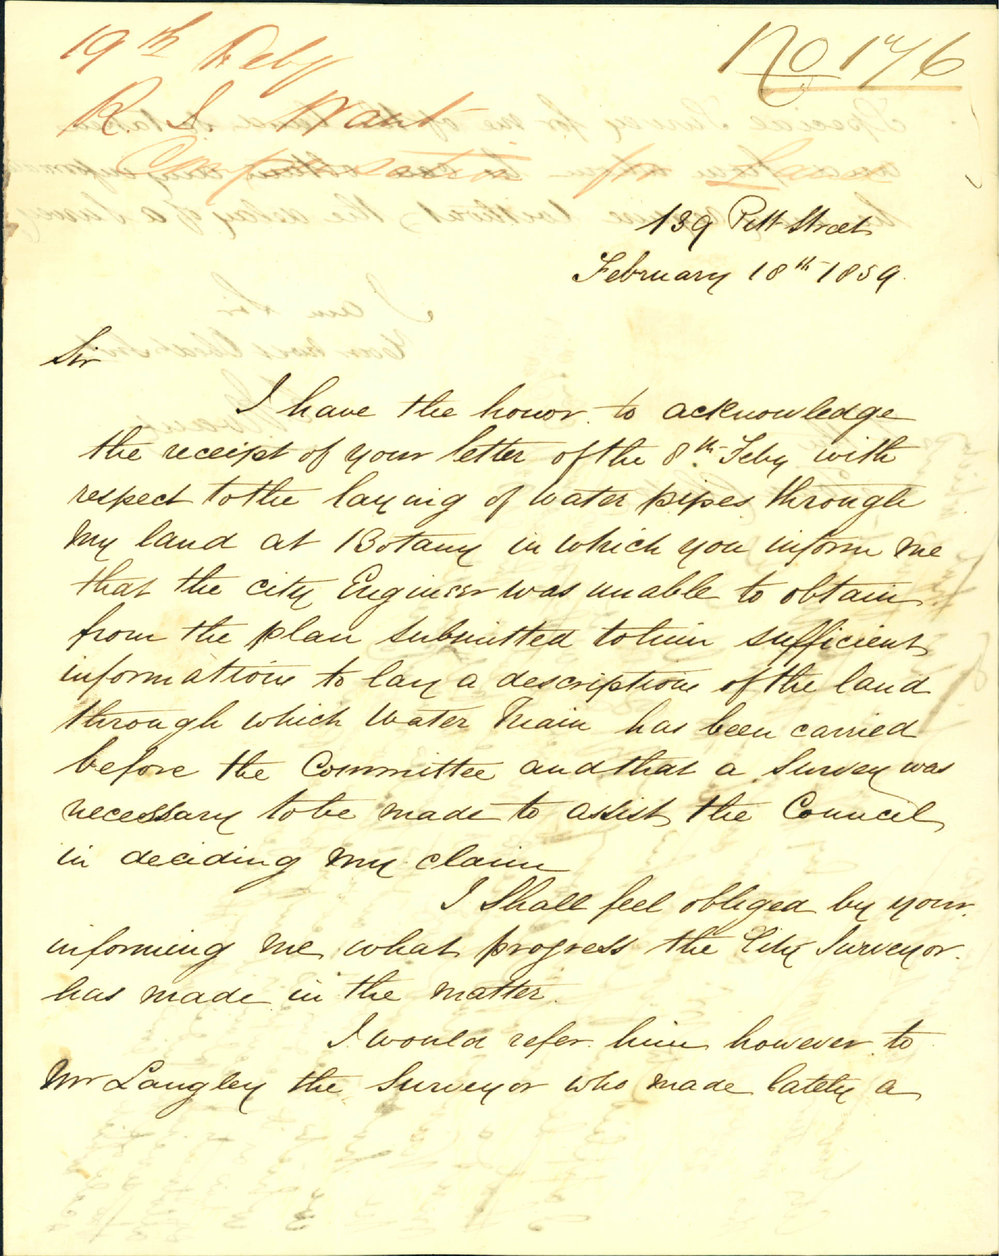 19th Feby
No 176
R. J. Want
Compensation for Land
139 Pitt Street
February 18th 1859.
Sir
I have the honor to acknowledge
the receipt of your letter of the 8th Feby with
respect to the laying of water pipes through
my land at Botany in which you inform me
that the city Engineer was unable to obtain
from the plan submitted to him sufficient
informations to lay a descriptions of the land
through which Water Main has been carried
before the Committee and that a Survey was
necessary to be made to assist the Council
in deciding my claim
I Shall feel obliged by your
informing me what progress the City Surveyor
has made in the matter.
I would refer him however to
Mr Langley the Surveyor who made lately a